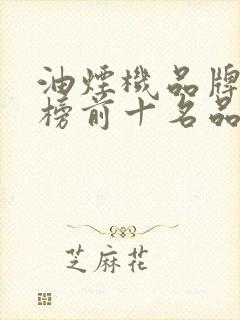 油煙機品牌
榜前十名品
芝麻花